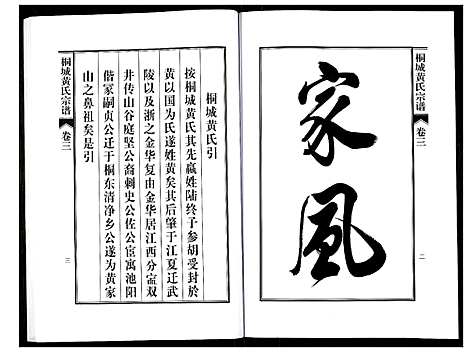 桐城黄氏宗谱
卷三
家风
二
桐城黄氏引
按桐城黄氏其先嬴姓陆终子参胡受封於
黄以国为氏遂姓黄矣其后肇于江夏迁武
陵以及浙之金华复由金华居江西分宁双
井传山谷庭坚公裔刺史公佐公宦寓池阳
偕冢嗣贞公迁于桐东清净乡公遂为黄家
山之鼻祖矣是引
桐城黄氏宗谱
卷三
三